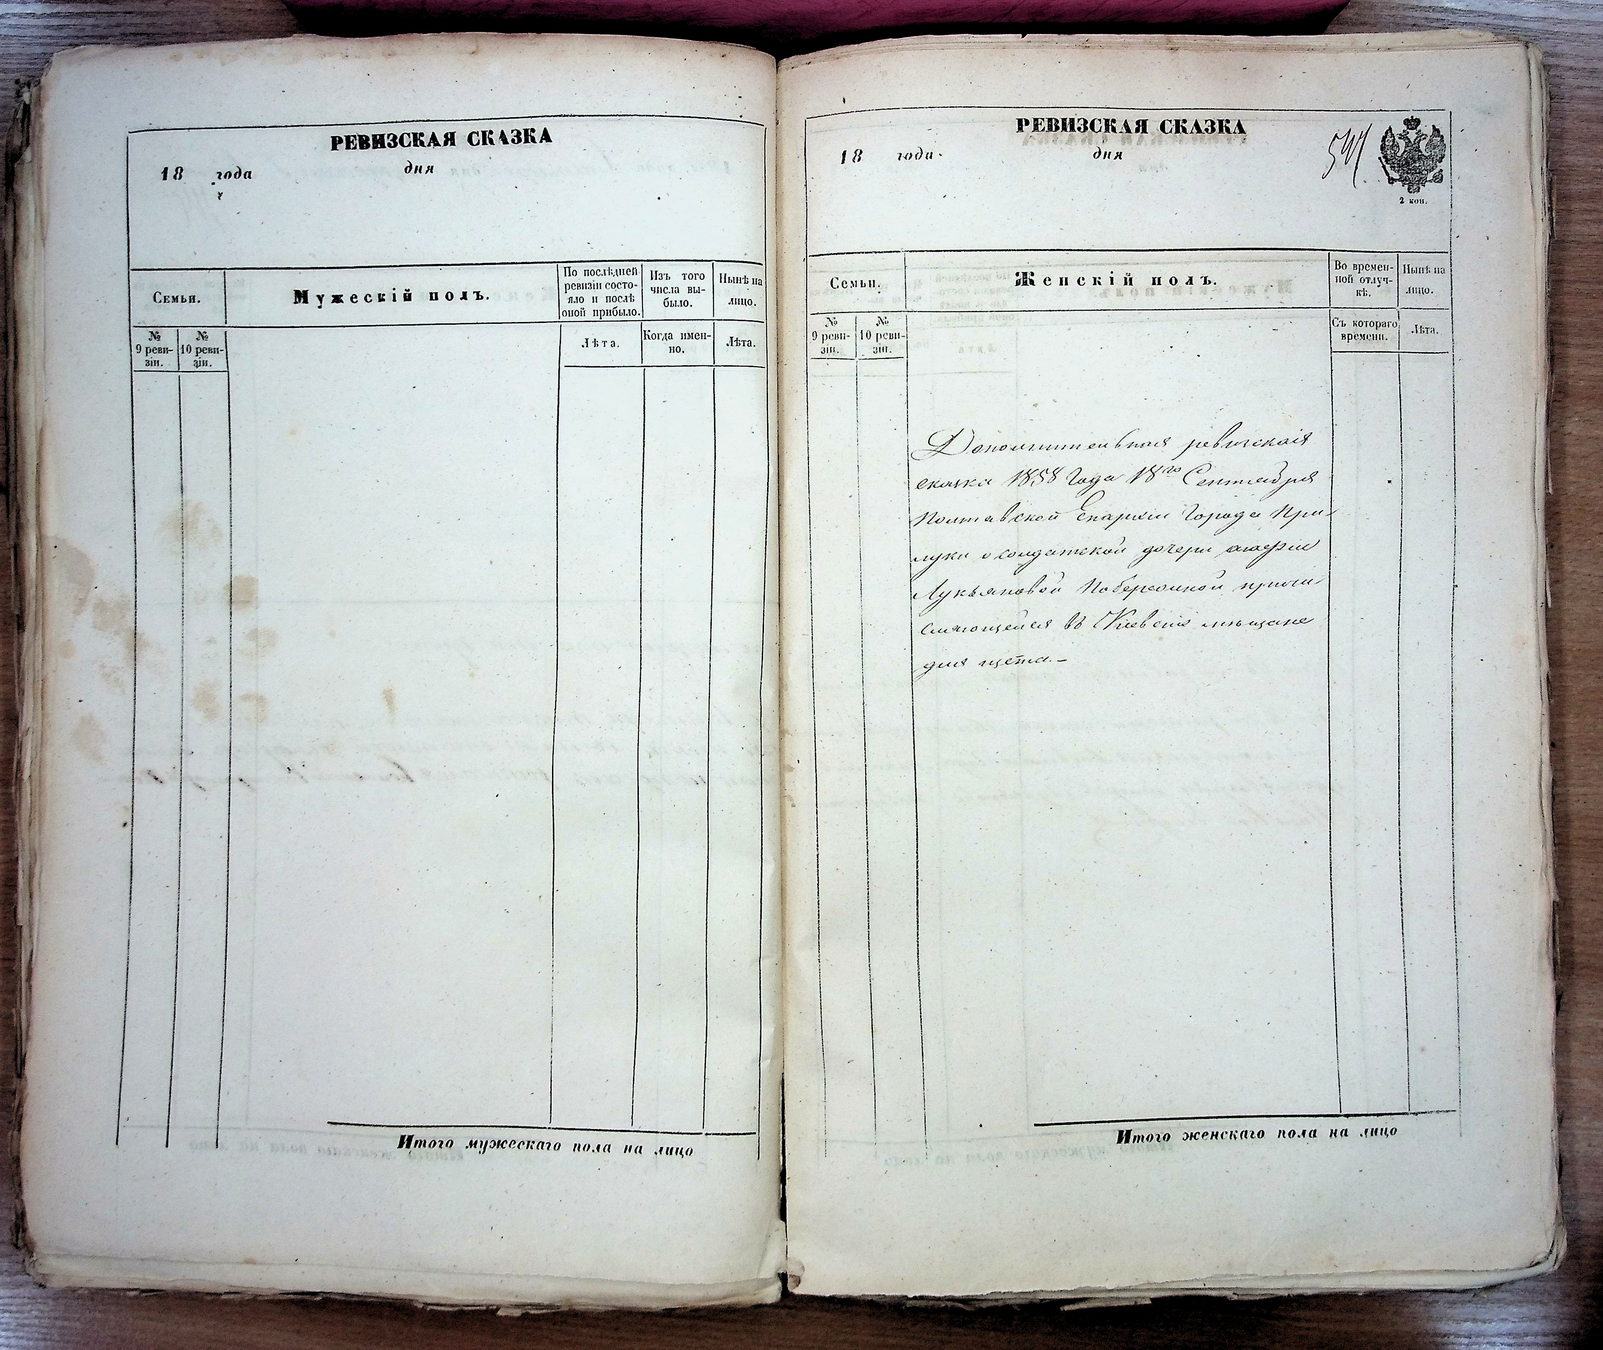 РЕВИЗСКАЯ СКАЗКА
18 года дня
Семьи.
Мужескій полъ.
По послѣдней
ревизіи состо-
яло и послѣ
оной прибыло.
Изъ того
числа вы-
было.
Нынѣ на
лицо.
№
9 реви-
зіи.
№
10 реви-
зіи.
Лѣта.
Когда имен-
но.
Лѣта.
Итого мужескаго пола на лицо
РЕВИЗСКАЯ СКАЗКА
18 года дня
2 коп.
Семьи.
Женскій полъ.
Во времен-
ной отлуч-
кѣ.
Нынѣ на
лицо.
№
9 реви-
зіи.
№
10 реви-
зіи.
Съ котораго
времени.
Лѣта.
Дополнительная ревизская
сказка 1858 Года 18го Сентября
Полтавской Епархіи Города При-
луки о солдатской дочери
Лукьяновой причи-
сляющейся въ Киевскіе мѣщане
для щета.
Итого женскаго пола на лицо